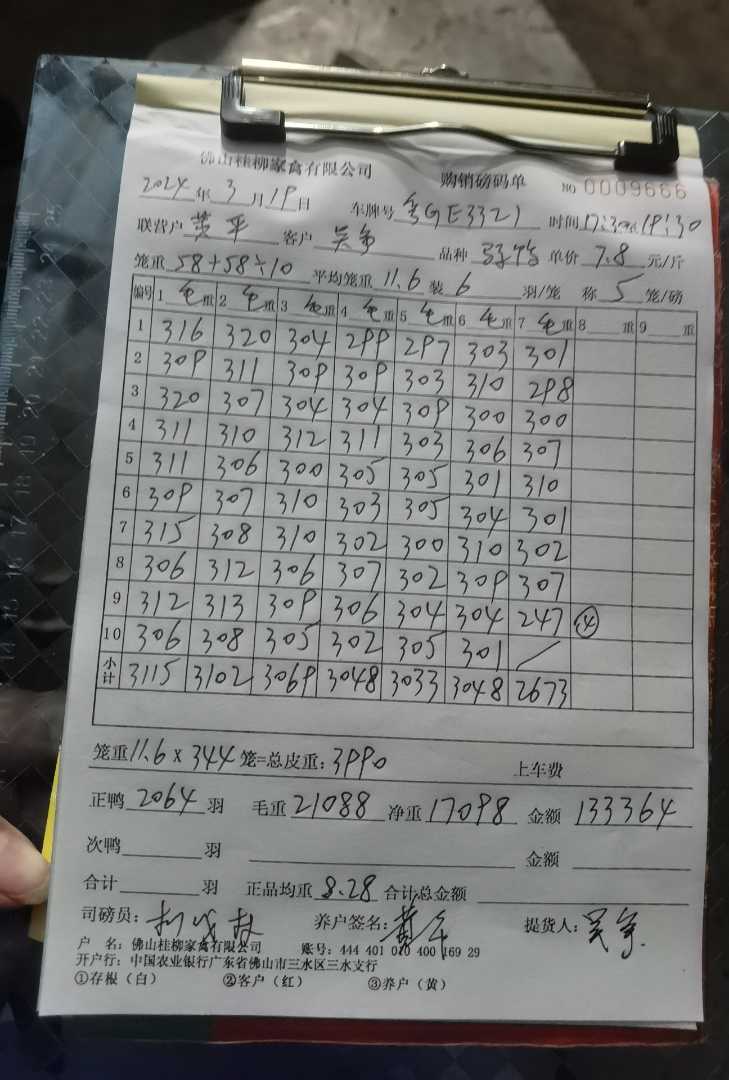 佛山桂柳家禽有限公司 购销磅码单 NO 0009666
2024年3月19日 车牌号 粤GE3321 时间17:30 19:30
联营户 黄平 客户 吴争 品种 单价 7.8 元/斤
笼重 58+58÷10 平均笼重 11.6 装 6 羽/笼 称 5 笼/磅
编号 1 毛重 2 毛重 3 毛重 4 毛重 5 毛重 6 毛重 7 毛重 8 重 9 重
1 316 320 304 299 297 303 301
2 309 311 309 309 303 310 298
3 320 307 304 304 309 300 300
4 311 310 312 311 303 306 307
5 311 306 300 305 305 301 310
6 309 307 310 303 305 304 301
7 315 308 310 302 300 310 302
8 306 312 306 307 302 309 307
9 312 313 309 306 304 304 247 ④
10 306 308 305 302 305 301 /
小计 3115 3102 3069 3048 3033 3048 2673
笼重 11.6 x 344 笼=总皮重: 3990 上车费
正鸭 2064 羽 毛重 21088 净重 17098 金额 133364
次鸭 羽 金额
合计 羽 正品均重 8.28 合计总金额
司磅员: 养户签名: 黄平 提货人: 吴争
户 名: 佛山桂柳家禽有限公司 账号: 444 401 010 400 169 29
开户行: 中国农业银行广东省佛山市三水区三水支行
①存根(白) ②客户(红) ③养户(黄)